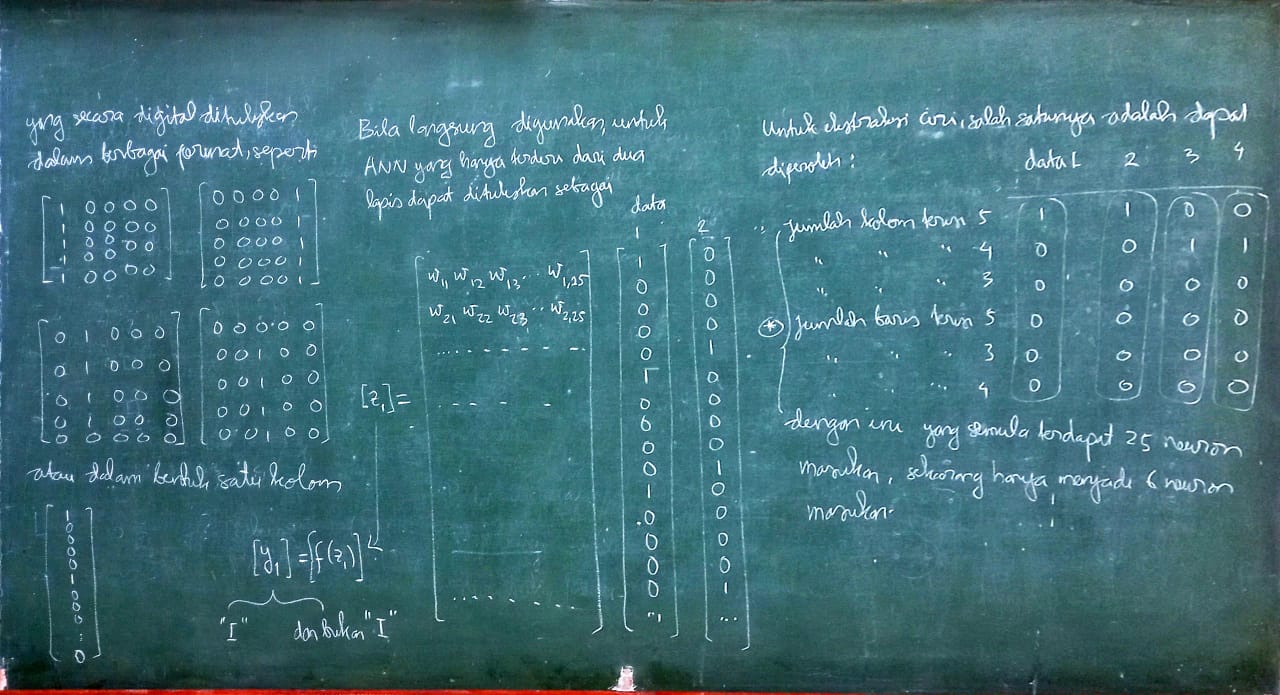 yang secara digital dituliskan
dalam berbagai format, seperti
1 0 0 0 0
1 0 0 0 0
1 0 0 0 0
1 0 0 0 0
1 0 0 0 0
0 0 0 0 1
0 0 0 0 1
0 0 0 0 1
0 0 0 0 1
0 0 0 0 1
0 1 0 0 0
0 1 0 0 0
0 1 0 0 0
0 1 0 0 0
0 0 0 0 0
0 0 0 0 0
0 0 1 0 0
0 0 1 0 0
0 0 1 0 0
0 0 1 0 0
atau dalam bentuk satu kolom
1
0
0
0
0
1
0
0
0
:
0
Bila langsung digunakan, untuk
ANN yang hanya terdiri dari dua
lapis dapat dituliskan sebagai
[z₁] =
w₁₁ w₁₂ w₁₃ ... w₁,₂₅
w₂₁ w₂₂ w₂₃ ... w₂,₂₅
data
1
1
0
0
0
0
1
0
0
0
0
1
0
0
0
0
...
2
0
0
0
0
1
0
0
0
0
1
0
0
0
0
1
...
[y₁] = [f(z₁)]
"I" dan bukan "I"
Untuk ekstraksi ciri, salah satunya adalah dapat
diperoleh :
data 1 2 3 4
jumlah kolom terisi 5 1 1 0 0
" " " 4 0 0 1 1
" " " 3 0 0 0 0
(*) jumlah baris terisi 5 0 0 0 0
" " " 3 0 0 0 0
" " " 4 0 0 0 0
dengan ini yang semula terdapat 25 neuron
masukan, sekarang hanya menjadi 6 neuron
masukan.